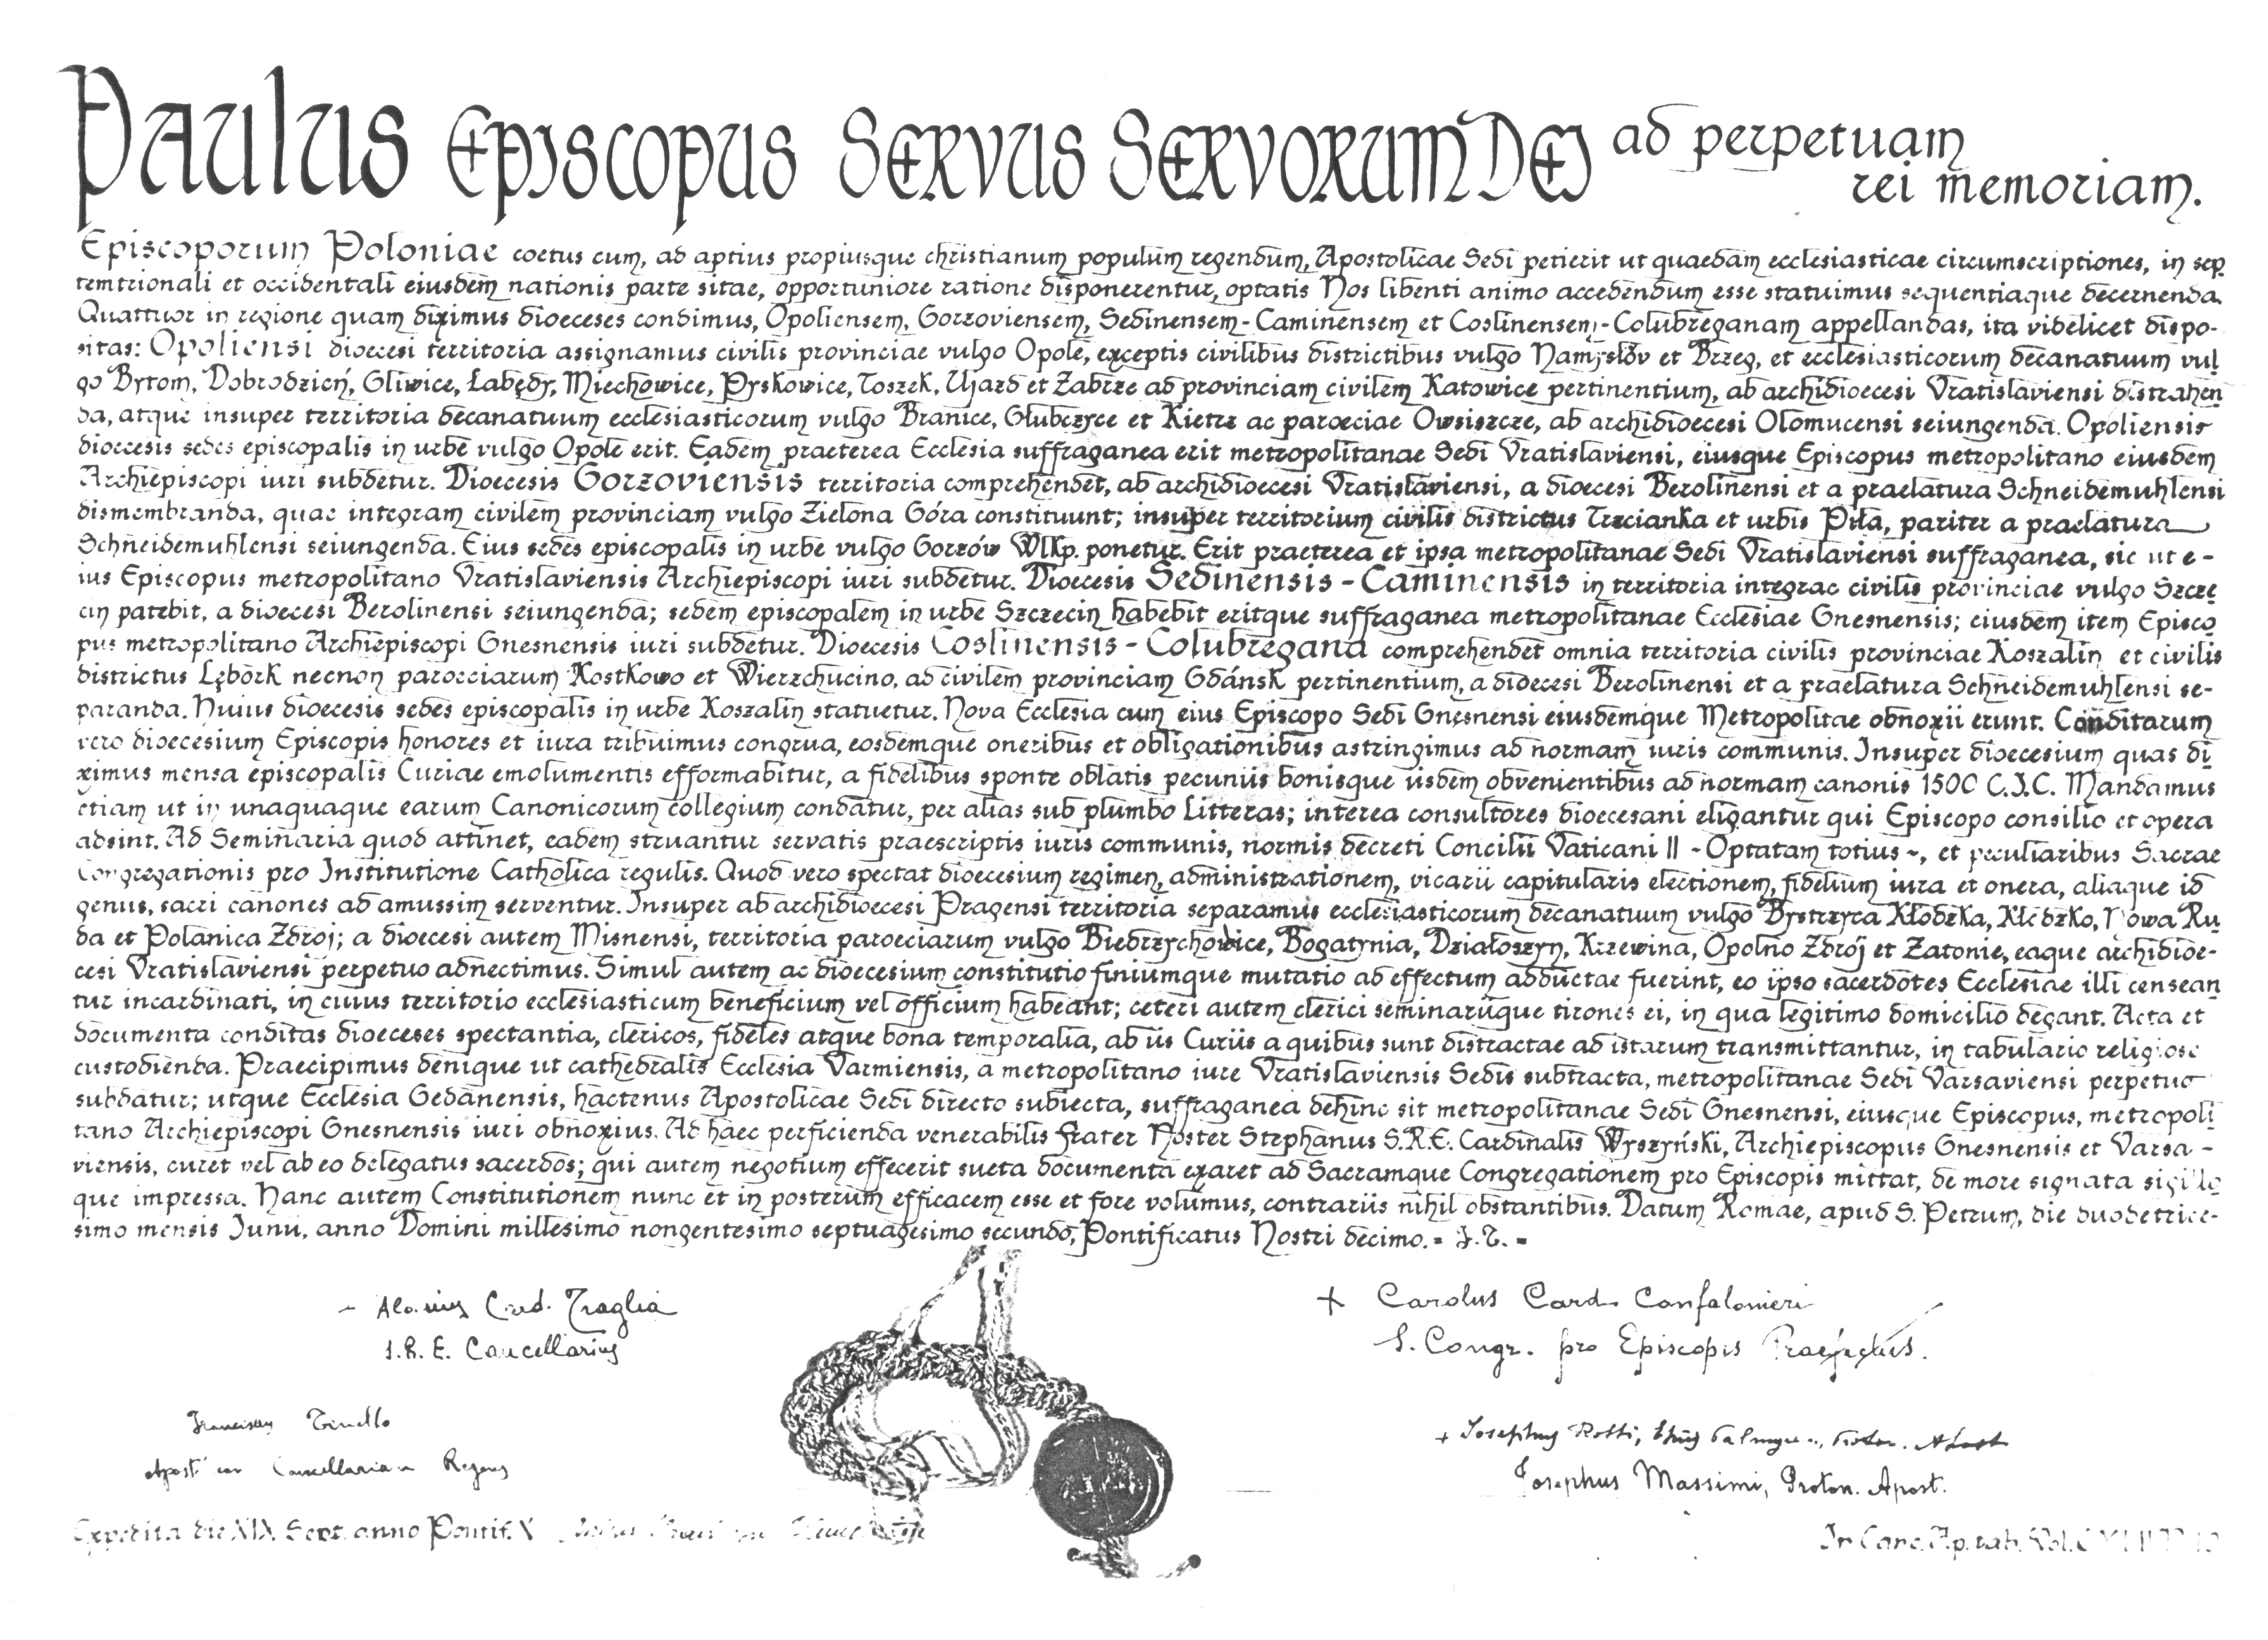 Paulus Episcopus Servus Servorum Dei ad perpetuam
rei memoriam.
Episcoporum Poloniae coetus cum, ad aptius propiusque christianum populum regendum, Apostolicae Sedi petierit ut quaedam ecclesiasticae circumscriptiones, in sep
temtrionali et occidentali eiusdem nationis parte sitae, opportuniore ratione disponerentur, optatis Nos libenti animo accedendum esse statuimus sequentiaque decernenda.
Quattuor in regione quam diximus dioeceses condimus, Opoliensem, Gorzoviensem, Sedinensem-Caminensem et Coslinensem-Colubreganam appellandas, ita videlicet dispo-
sitas: Opoliensi dioecesi territoria assignamus civilis provinciae vulgo Opole, exceptis civilibus districtibus vulgo Namysłov et Brzeg, et ecclesiasticorum decanatuum vul
go Bytom, Dobrodzień, Gliwice, Łabędy, Miechowice, Pyskowice, Toszek, Ujazd et Zabrze ad provinciam civilem Katowice pertinentium, ab archidioecesi Vratislaviensi distrahen
da, atque insuper territoria decanatuum ecclesiasticorum vulgo Branice, Głubczyce et Kietrz ac paroeciae Owsiszcze, ab archidioecesi Olomucensi seiungenda. Opoliensis
dioecesis sedes episcopalis in urbe vulgo Opole erit. Eadem praeterea Ecclesia suffraganea erit metropolitanae Sedi Vratislaviensi, eiusque Episcopus metropolitano eiusdem
Archiepiscopi iuri subdetur. Dioecesis Gorzoviensis territoria comprehendet, ab archidioecesi Vratislaviensi, a dioecesi Berolinensi et a praelatura Schneidemuhlensi
dismembranda, quae integram civilem provinciam vulgo Zielona Góra constituunt; insuper territorium civilis districtus Trzcianka et urbis Piła, pariter a praelatura
Schneidemuhlensi seiungenda. Eius sedes episcopalis in urbe vulgo Gorzów Wlkp. ponetur. Erit praeterea et ipsa metropolitanae Sedi Vratislaviensi suffraganea, sic ut e-
ius Episcopus metropolitano Vratislaviensis Archiepiscopi iuri subdetur. Dioecesis Sedinensis-Caminensis in territoria integrae civilis provinciae vulgo Szcze
cin patebit, a dioecesi Berolinensi seiungenda; sedem episcopalem in urbe Szczecin habebit eritque suffraganea metropolitanae Ecclesiae Gnesnensis; eiusdem item Episco
pus metropolitano Archiepiscopi Gnesnensis iuri subdetur. Dioecesis Coslinensis-Colubregana comprehendet omnia territoria civilis provinciae Koszalin et civilis
districtus Lębork necnon paroeciarum Kostkowo et Wierzchucino, ad civilem provinciam Gdánsk pertinentium, a dioecesi Berolinensi et a praelatura Schneidemuhlensi se-
paranda. Huius dioecesis sedes episcopalis in urbe Koszalin statuetur. Nova Ecclesia cum eius Episcopo Sedi Gnesnensi eiusdemque Metropolitae obnoxii erunt. Conditarum
vero dioecesium Episcopis honores et iura tribuimus congrua, eosdemque oneribus et obligationibus astringimus ad normam iuris communis. Insuper dioecesium quas di
ximus mensa episcopalis Curiae emolumentis efformabitur, a fidelibus sponte oblatis pecuniis bonisque iisdem obvenientibus ad normam canonis 1500 C.J.C. Mandamus
etiam ut in unaquaque earum Canonicorum collegium condatur, per alias sub plumbo Litteras; interea consultores dioecesani eligantur qui Episcopo consilio et opera
adsint. Ad Seminaria quod attinet, eadem struantur servatis praescriptis iuris communis, normis decreti Concilii Vaticani II - Optatam totius -, et peculiaribus Sacrae
Congregationis pro Institutione Catholica regulis. Quod vero spectat dioecesium regimen, administrationem, vicarii capitularis electionem, fidelium iura et onera, aliaque id
genus, sacri canones ad amussim serventur. Insuper ab archidioecesi Pragensi territoria separamus ecclesiasticorum decanatuum vulgo Bystrzyca Kłodzka, Kłodzko, Nowa Ru
da et Polanica Zdroj; a dioecesi autem Misnensi, territoria paroeciarum vulgo Biedrzychowice, Bogatynia, Działoszyn, Krzewina, Opolno Zdrój et Zatonie, eaque archidioe-
cesi Vratislaviensi perpetuo adnectimus. Simul autem ac dioecesium constitutio finiumque mutatio ad effectum adductae fuerint, eo ipso sacerdotes Ecclesiae illi censean
tur incardinati, in cuius territorio ecclesiasticum beneficium vel officium habeant; ceteri autem clerici seminariique tirones ei, in qua legitimo domicilio degant. Acta et
documenta conditas dioeceses spectantia, clericos, fideles atque bona temporalia, ab iis Curiis a quibus sunt distractae ad istarum transmittantur, in tabulario religiose
custodienda. Praecipimus denique ut cathedralis Ecclesia Varmiensis, a metropolitano iure Vratislaviensis Sedis subtracta, metropolitanae Sedi Varsaviensi perpetuo
subdatur; utque Ecclesia Gedanensis, hactenus Apostolicae Sedi directo subiecta, suffraganea dehinc sit metropolitanae Sedi Gnesnensi, eiusque Episcopus, metropoli
tano Archiepiscopi Gnesnensis iuri obnoxius. Ad haec perficienda venerabilis frater Noster Stephanus S.R.E. Cardinalis Wyszyński, Archiepiscopus Gnesnensis et Varsa-
viensis, curet vel ab eo delegatus sacerdos; qui autem negotium effecerit sueta documenta exaret ad Sacramque Congregationem pro Episcopis mittat, de more signata sigillo
que impressa. Hanc autem Constitutionem nunc et in posterum efficacem esse et fore volumus, contrariis nihil obstantibus. Datum Romae, apud S. Petrum, die duodetrice-
simo mensis Iunii, anno Domini millesimo nongentesimo septuagesimo secundo, Pontificatus Nostri decimo. - J.T. -
Aloisius Card. Traglia
S.R.E. Cancellarius
+ Carolus Card. Confalonieri
S. Congr. pro Episcopis Praefectus.
Franciscus Tinello
Apost Cancellariam Regens
+ Josephus Rossi, Apost
Josephus Massimi, Proton. Apost.
Expedita die XIX Sept. anno Pontif. X
In Canc. Ap. tab. Vol.